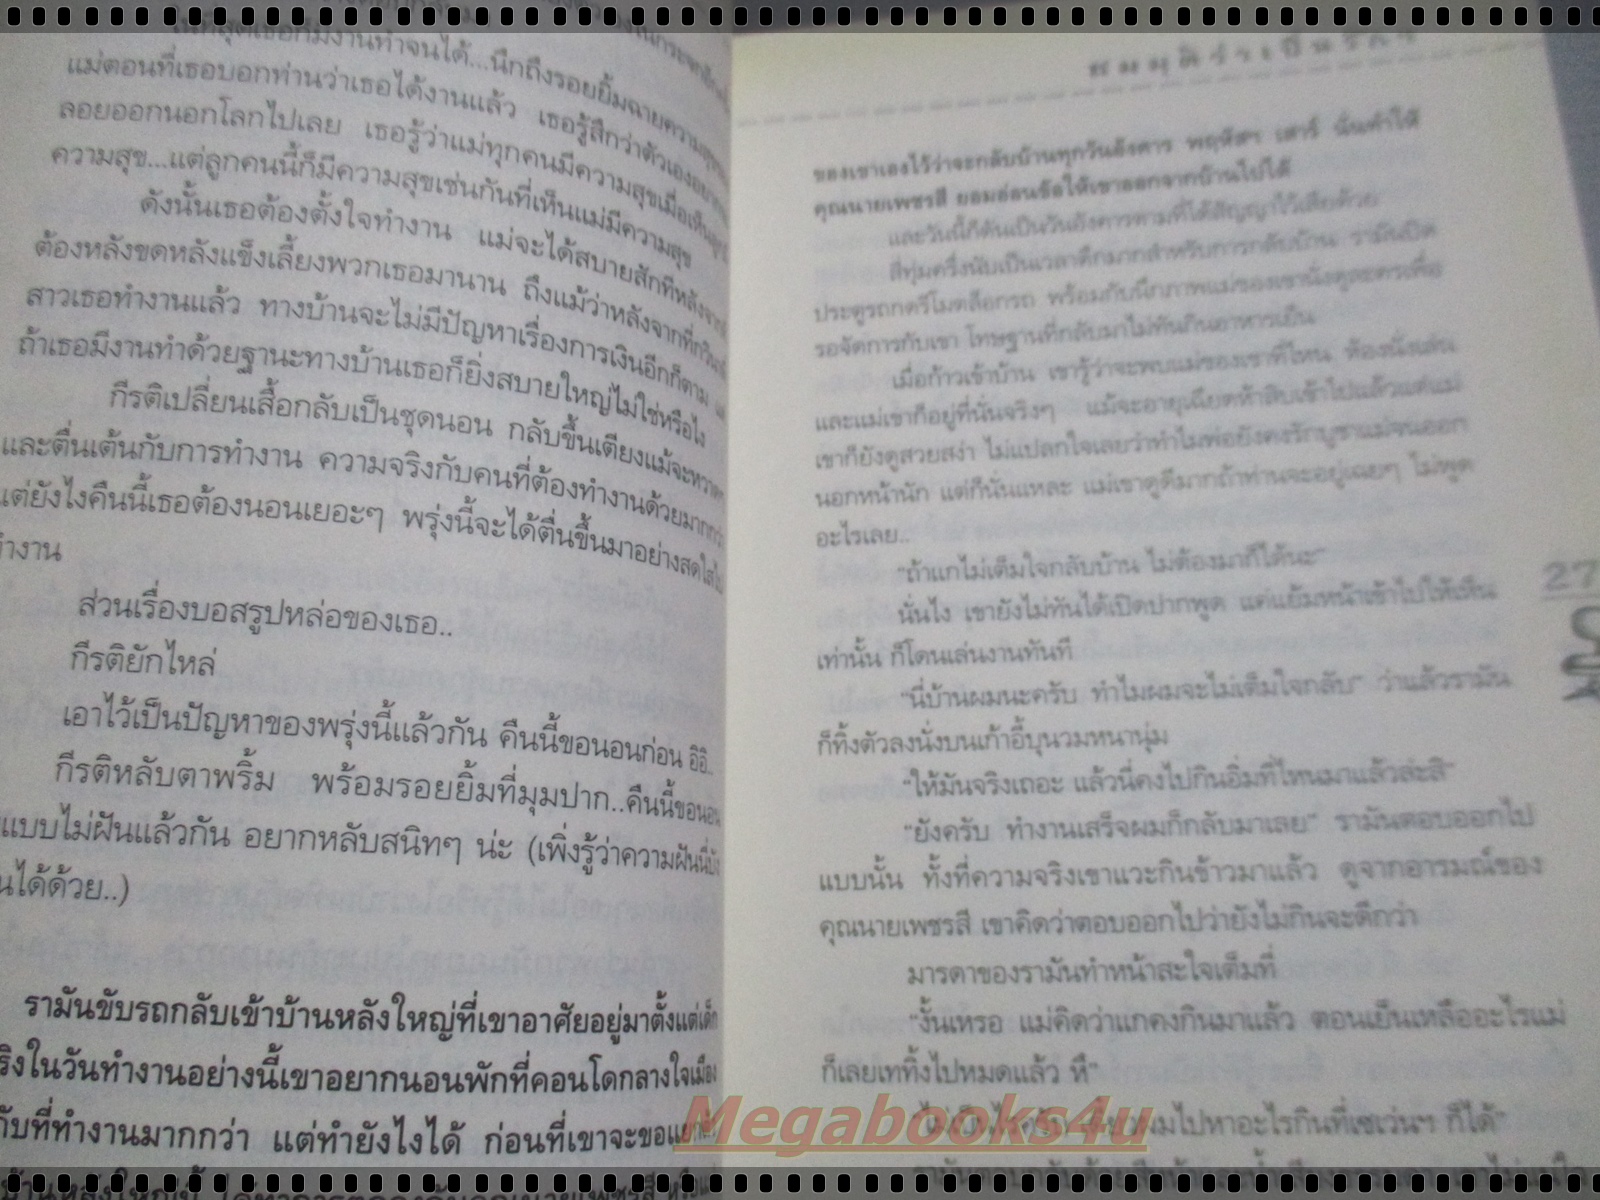 ในที่สุดเธอก็มีงานทำจนได้...นึกถึงรอยยิ้มฉายความสุขของ
แม่ตอนที่เธอบอกท่านว่าเธอได้งานแล้ว เธอรู้สึกว่าตัวเองอยาก
ลอยออกนอกโลกไปเลย เธอรู้ว่าแม่ทุกคนมีความสุขเมื่อเห็นลูก
ความสุข...แต่ลูกคนนี้ก็มีความสุขเช่นกันที่เห็นแม่มีความสุข
ดังนั้นเธอต้องตั้งใจทำงาน แม่จะได้สบายสักทีหลังจาก
ต้องหลังขดหลังแข็งเลี้ยงพวกเธอมานาน ถึงแม้ว่าหลังจากที่
สาวเธอทำงานแล้ว ทางบ้านจะไม่มีปัญหาเรื่องการเงินอีกก็ตาม
ถ้าเธอมีงานทำด้วยฐานะทางบ้านเธอก็ยิ่งสบายใหญ่ไม่ใช่หรือไง
กีรติเปลี่ยนเสื้อกลับเป็นชุดนอน กลับขึ้นเตียงแม้จะหวาด
และตื่นเต้นกับการทำงาน ความจริงกับคนที่ต้องทำงานด้วยมากกว่า
แต่ยังไงคืนนี้เธอต้องนอนเยอะๆ พรุ่งนี้จะได้ตื่นขึ้นมาอย่างสดใส
ทำงาน
ส่วนเรื่องบอสรูปหล่อของเธอ..
กีรติยักไหล่
เอาไว้เป็นปัญหาของพรุ่งนี้แล้วกัน คืนนี้ขอนอนก่อน อิอิ..
กีรติหลับตาพริ้ม พร้อมรอยยิ้มที่มุมปาก..คืนนี้ขอนอน
แบบไม่ฝันแล้วกัน อยากหลับสนิทๆ น่ะ (เพิ่งรู้ว่าความฝันนี่
นได้ด้วย..)
รามันขับรถกลับเข้าบ้านหลังใหญ่ที่เขาอาศัยอยู่มาตั้งแต่เด็ก
ริงในวันทำงานอย่างนี้เขาอยากนอนพักที่คอนโดกลางใจเมือง
กับที่ทำงานมากกว่า แต่ทำยังไงได้ ก่อนที่เขาจะขอแยก
ของเขาเองไว้ว่าจะกลับบ้านทุกวันอังคาร พฤหัสฯ เสาร์ นั่นทำให้
คุณนายเพชรสี ยอมอ่อนข้อให้เขาออกจากบ้านไปได้
และวันนี้ก็ดันเป็นวันอังคารตามที่ได้สัญญาไว้เสียด้วย
สี่ทุ่มครึ่งนับเป็นเวลาดึกมากสำหรับการกลับบ้าน รามันปิด
ประตูรถกดรีโมตล็อกรถ พร้อมกับนึกภาพแม่ของเขานั่งดูละครเพื่อ
รอจัดการกับเขา โทษฐานที่กลับมาไม่ทันกินอาหารเย็น
เมื่อก้าวเข้าบ้าน เขารู้ว่าจะพบแม่ของเขาที่ไหน ห้องนั่งเล่น
และแม่เขาก็อยู่ที่นั่นจริงๆ แม้จะอายุเฉียดห้าสิบเข้าไปแล้วแต่แม่
เขาก็ยังดูสวยสง่า ไม่แปลกใจเลยว่าทำไมพ่อยังคงรักบูชาแม่จนออก
นอกหน้านัก แต่ก็นั่นแหละ แม่เขาดูดีมากถ้าท่านจะอยู่เฉยๆ ไม่พูด
อะไรเลย..
"ถ้าแกไม่เต็มใจกลับบ้าน ไม่ต้องมาก็ได้นะ"
นั่นไง เขายังไม่ทันได้เปิดปากพูด แค่แย้มหน้าเข้าไปให้เห็น
เท่านั้น ก็โดนเล่นงานทันที
"นี่บ้านผมนะครับ ทำไมผมจะไม่เต็มใจกลับ" ว่าแล้วรามัน
ก็ทิ้งตัวลงนั่งบนเก้าอี้บุนวมหนานุ่ม
"ให้มันจริงเถอะ แล้วนี่คงไปกินอิ่มที่ไหนมาแล้วล่ะสิ"
"ยังครับ ทำงานเสร็จผมก็กลับมาเลย" รามันตอบออกไป
แบบนั้น ทั้งที่ความจริงเขาแวะกินข้าวมาแล้ว ดูจากอารมณ์ของ
คุณนายเพชรสี เขาคิดว่าตอบออกไปว่ายังไม่กินจะดีกว่า
มารดาของรามันทำหน้าสะใจเต็มที่
"งั้นเหรอ แม่คิดว่าแกคงกินมาแล้ว ตอนเย็นเหลืออะไรแม่
ก็เลยเททิ้งไปหมดแล้ว หึ"
"ไม่เป็นไรครับ เดี๋ยวผมไปหาอะไรกินที่เซเว่นฯ ก็ได้"
27
Megabooks4u